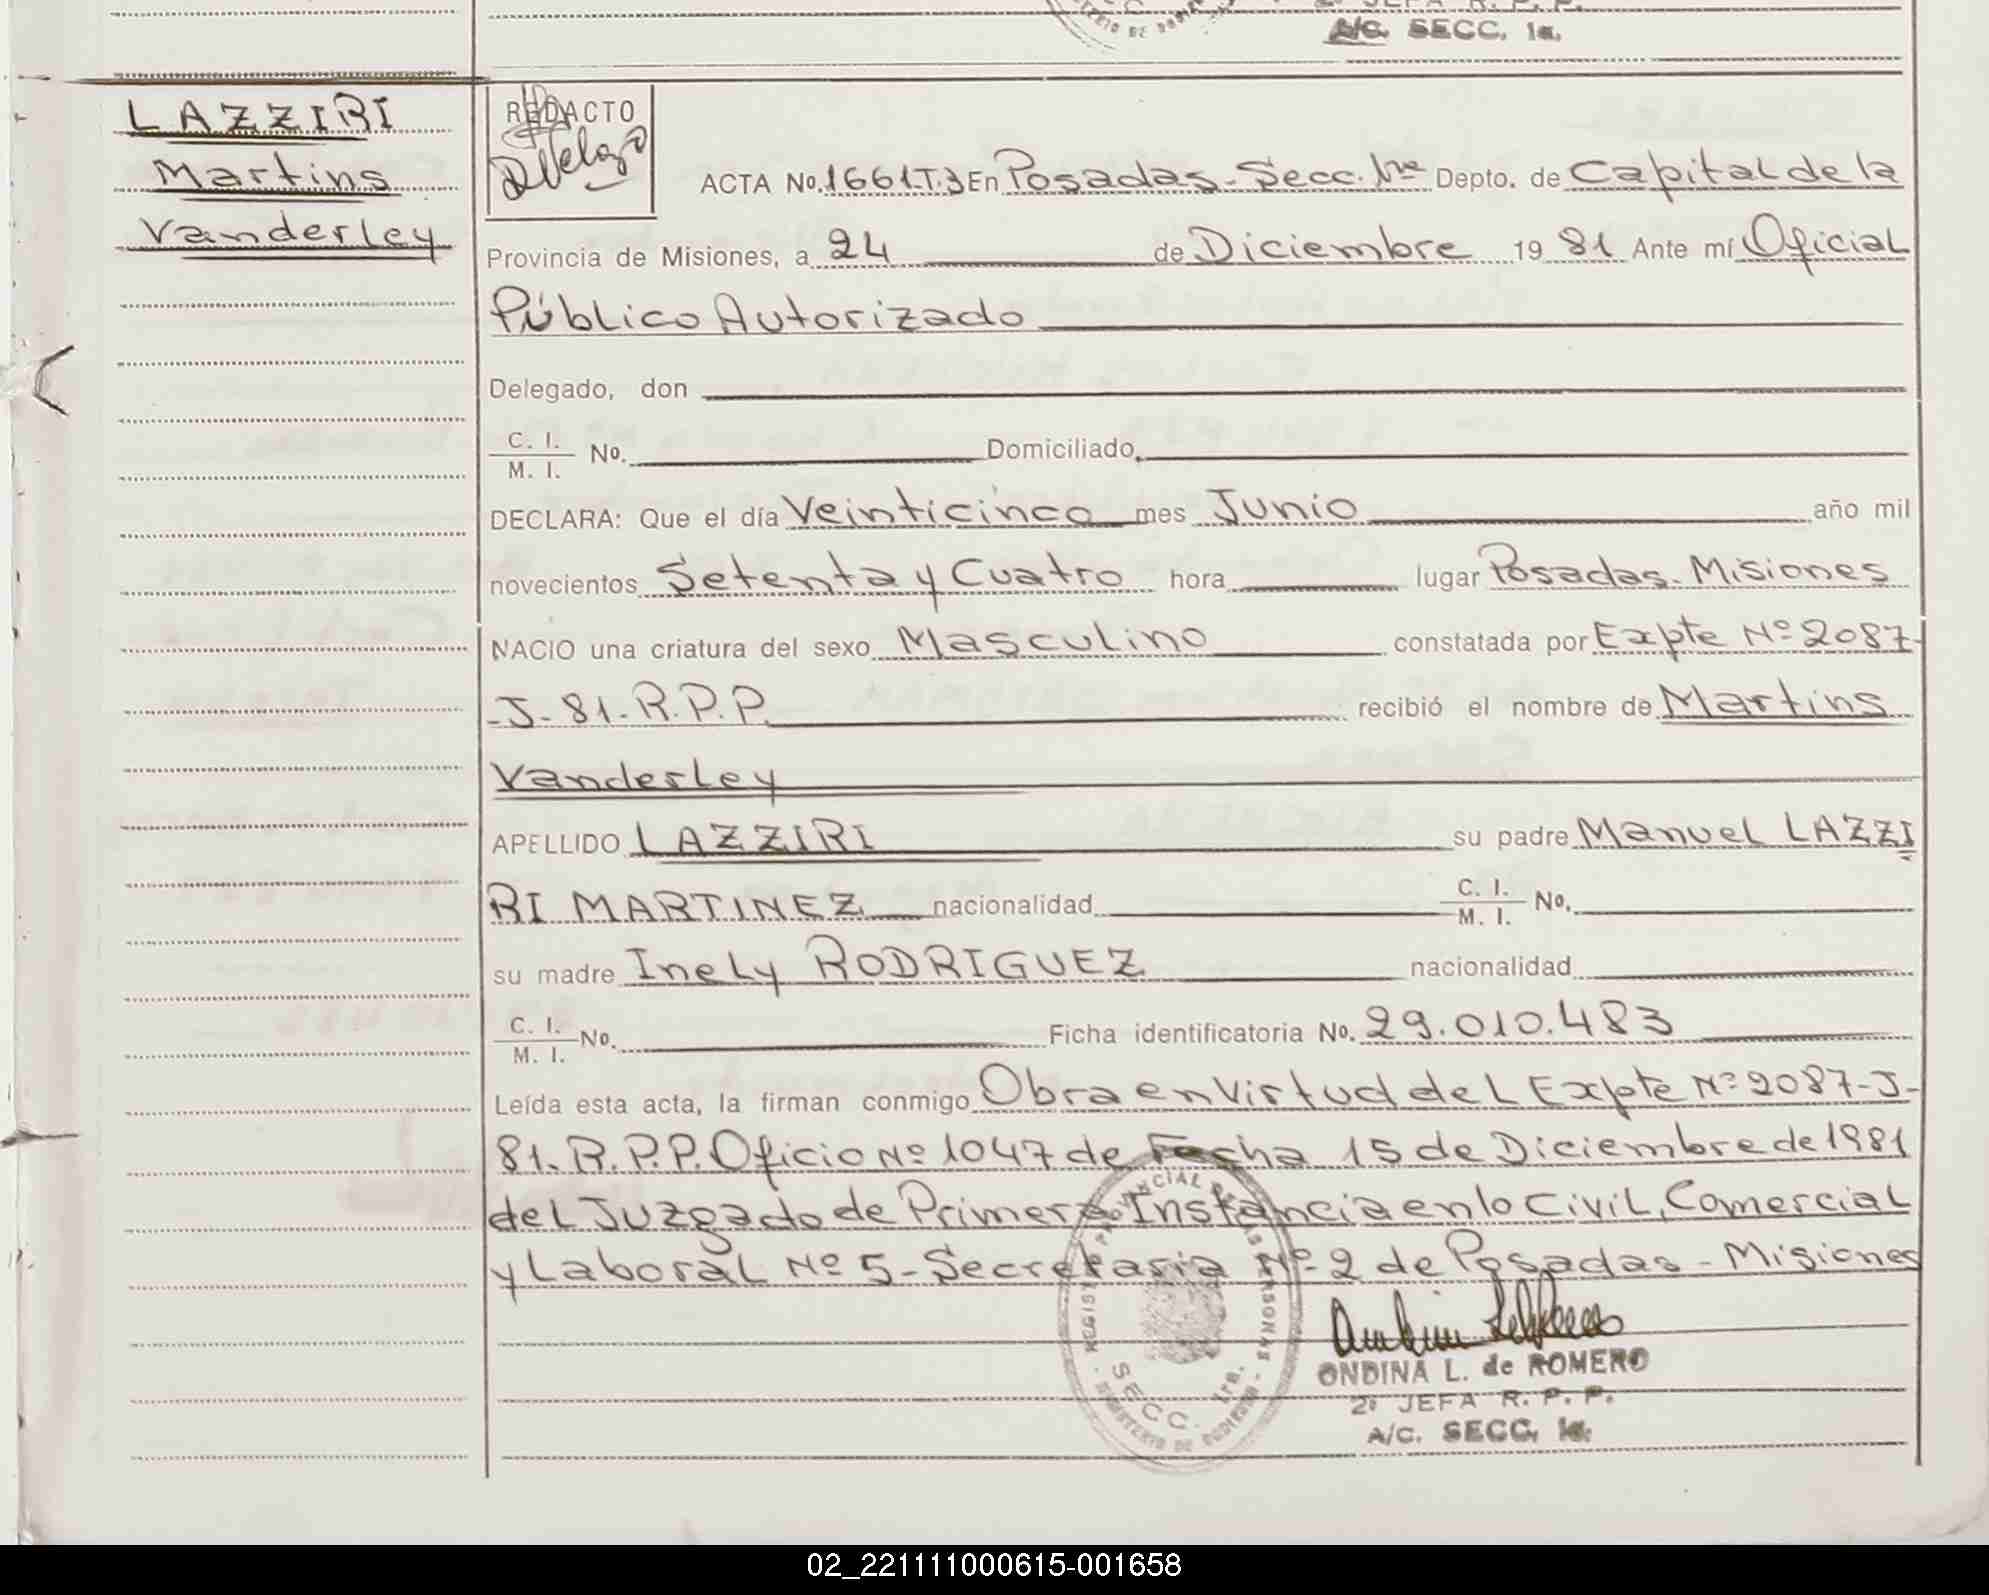 2º JEFA R. P. P.
A/C. SECC. 1a.
LAZZIRI
Martins
Vanderley
REDACTO
ACTA No. 1661.T.3 En Posadas - Secc. 1ra Depto. de Capital de la
Provincia de Misiones, a 24 de Diciembre 19 81 Ante mí Oficial
Público Autorizado
Delegado, don
C. I.
M. I. No. Domiciliado
DECLARA: Que el día Veinticinco mes Junio año mil
novecientos Setenta y Cuatro hora lugar Posadas. Misiones
NACIO una criatura del sexo Masculino constatada por Expte Nº 2087-
-J-81-R.P.P. recibió el nombre de Martins
Vanderley
APELLIDO LAZZIRI su padre Manuel LAZZI
RI MARTINEZ nacionalidad C. I.
M. I. No.
su madre Inely RODRIGUEZ nacionalidad
C. I.
M. I. No. Ficha identificatoria No. 29.010.483
Leída esta acta, la firman conmigo Obra en Virtud del Expte Nº 2087-J-
81. R.P.P. Oficio Nº 1047 de Fecha 15 de Diciembre de 1981
del Juzgado de Primera Instancia en lo Civil, Comercial
y Laboral Nº 5 - Secretaria Nº 2 de Posadas - Misiones
REGISTRO PROVINCIAL DE LAS PERSONAS
SECC. 1ra.
MINISTERIO DE GOBIERNO
ONDINA L. de ROMERO
2º JEFA R. P. P.
A/C. SECC. 1a.
02_221111000615-001658